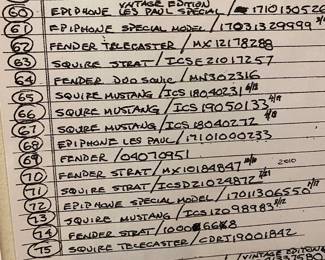 VINTAGE EDITION
60 EPIPHONE LES PAUL SPECIAL / 1710130526
61 EPIPHONE SPECIAL MODEL / 17031329999 3/17
62 FENDER TELECASTER / MX12178288
63 SQUIRE STRAT / ICSE21017257
64 FENDER DUO SONIC / MN302316
65 SQUIRE MUSTANG / ICS 18040231 4/18
66 SQUIRE MUSTANG / ICS 19050133 5/19
67 SQUIRE MUSTANG / ICS 18040272 4/18
68 EPIPHONE LES PAUL / 17101000233
69 FENDER / 04070951
70 FENDER STRAT / MX10184847 10/10 2010
71 SQUIRE STRAT / ICSD21024872 1/21
72 EPIPHONE SPECIAL MODEL / 17011306550 1/17
73 SQUIRE MUSTANG / ICS12098983 9/12
74 FENDER STRAT /
75 SQUIRE TELECASTER / CDRT19001842
VINTAGE EDITION